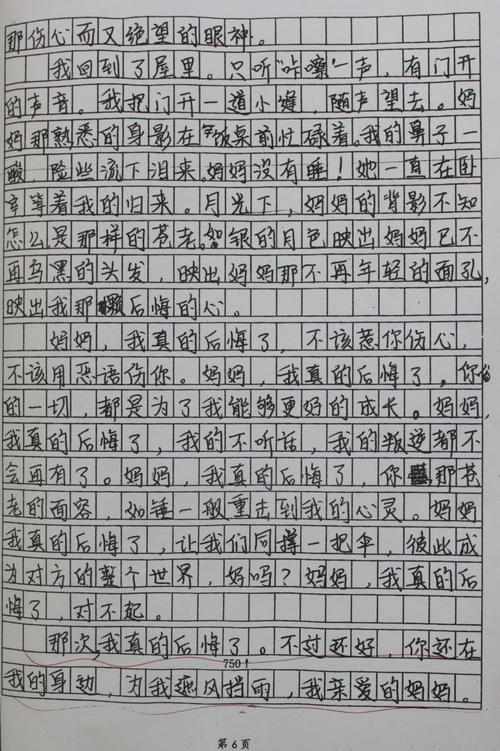 那伤心而又绝望的眼神。
我回到了屋里。只听"咔嚓"一声，有门开
的声音。我把门开一道小缝，随声望去。妈
妈那熟悉的身影在饭桌前忙碌着。我的鼻子一
酸 险些流下泪来。妈妈没有睡！她一直在卧
室等着我的归来。月光下，妈妈的背影不知
怎么是那样的苍老。如银的月色，映出妈妈已不
再乌黑的头发，映出妈妈那不再年轻的面孔，
映出我那颗后悔的心。
妈妈，我真的后悔了，不该惹你伤心，
不该用恶语伤你。妈妈，我真的后悔了。你做
的一切，都是为了我能够更好的成长。妈妈，
我真的后悔了，我的不听话，我的叛逆都不
会再有了。妈妈，我真的后悔了，你那苍
老的面容，如锤一般重击到我的心灵。妈妈
我真的后悔了，让我们同撑一把伞，彼此成
为对方的整个世界，好吗？妈妈，我真的后
悔了，对不起。
那次，我真的后悔了。不过还好，你还在
750↑
我的身边，为我遮风挡雨，我亲爱的妈妈。
第 6 页